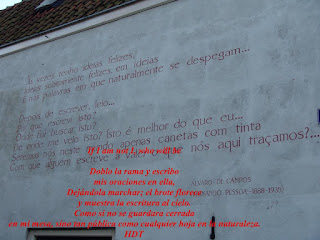 Às vezes tenho ideias felizes,
Ideias subitamente felizes, em ideias
E nas palavras em que naturalmente se despegam...
Depois de escrever, leio...
Por que escrevi isto?
Onde fui buscar isto?
De onde me veio isto? Isto é melhor do que eu...
Seremos nós neste mundo apenas canetas com tinta
Com que alguém escreve a valer o que nós aqui traçamos?...
ÁLVARO DE CAMPOS
PESSOA 1888-1935
If I am not I, who will be
Doblo la rama y escribo
mis oraciones en ella,
Dejándola marchar; el brote florece
y muestra la escritura al cielo.
Como si no se guardara cerrada
en mi mesa, sino tan pública como cualquier hoja en la naturaleza.
HDT